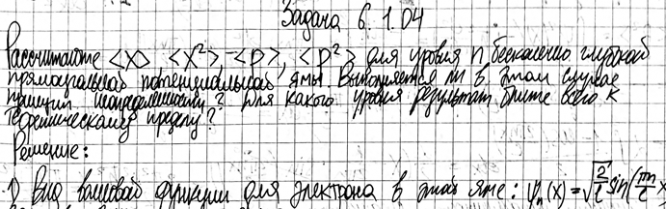 Задача 6.1.04
Рассчитайте <x> <x²> <p>, <p²> для уровня n бесконечно глубокой
прямоугольной потенциальной ямы. Выполняется ли в этом случае
принцип неопределенности? Для какого уровня результат ближе всего к
теоретическому пределу?
Решение:
1) Вид волновой функции для электрона в этой яме: ψₙ(x) = √(2/l) sin(πn/l x